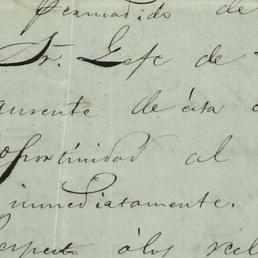 permitido de
Sr. Gefe de
ausente de ésta
oportunidad al
immediatamente.
respecto á los